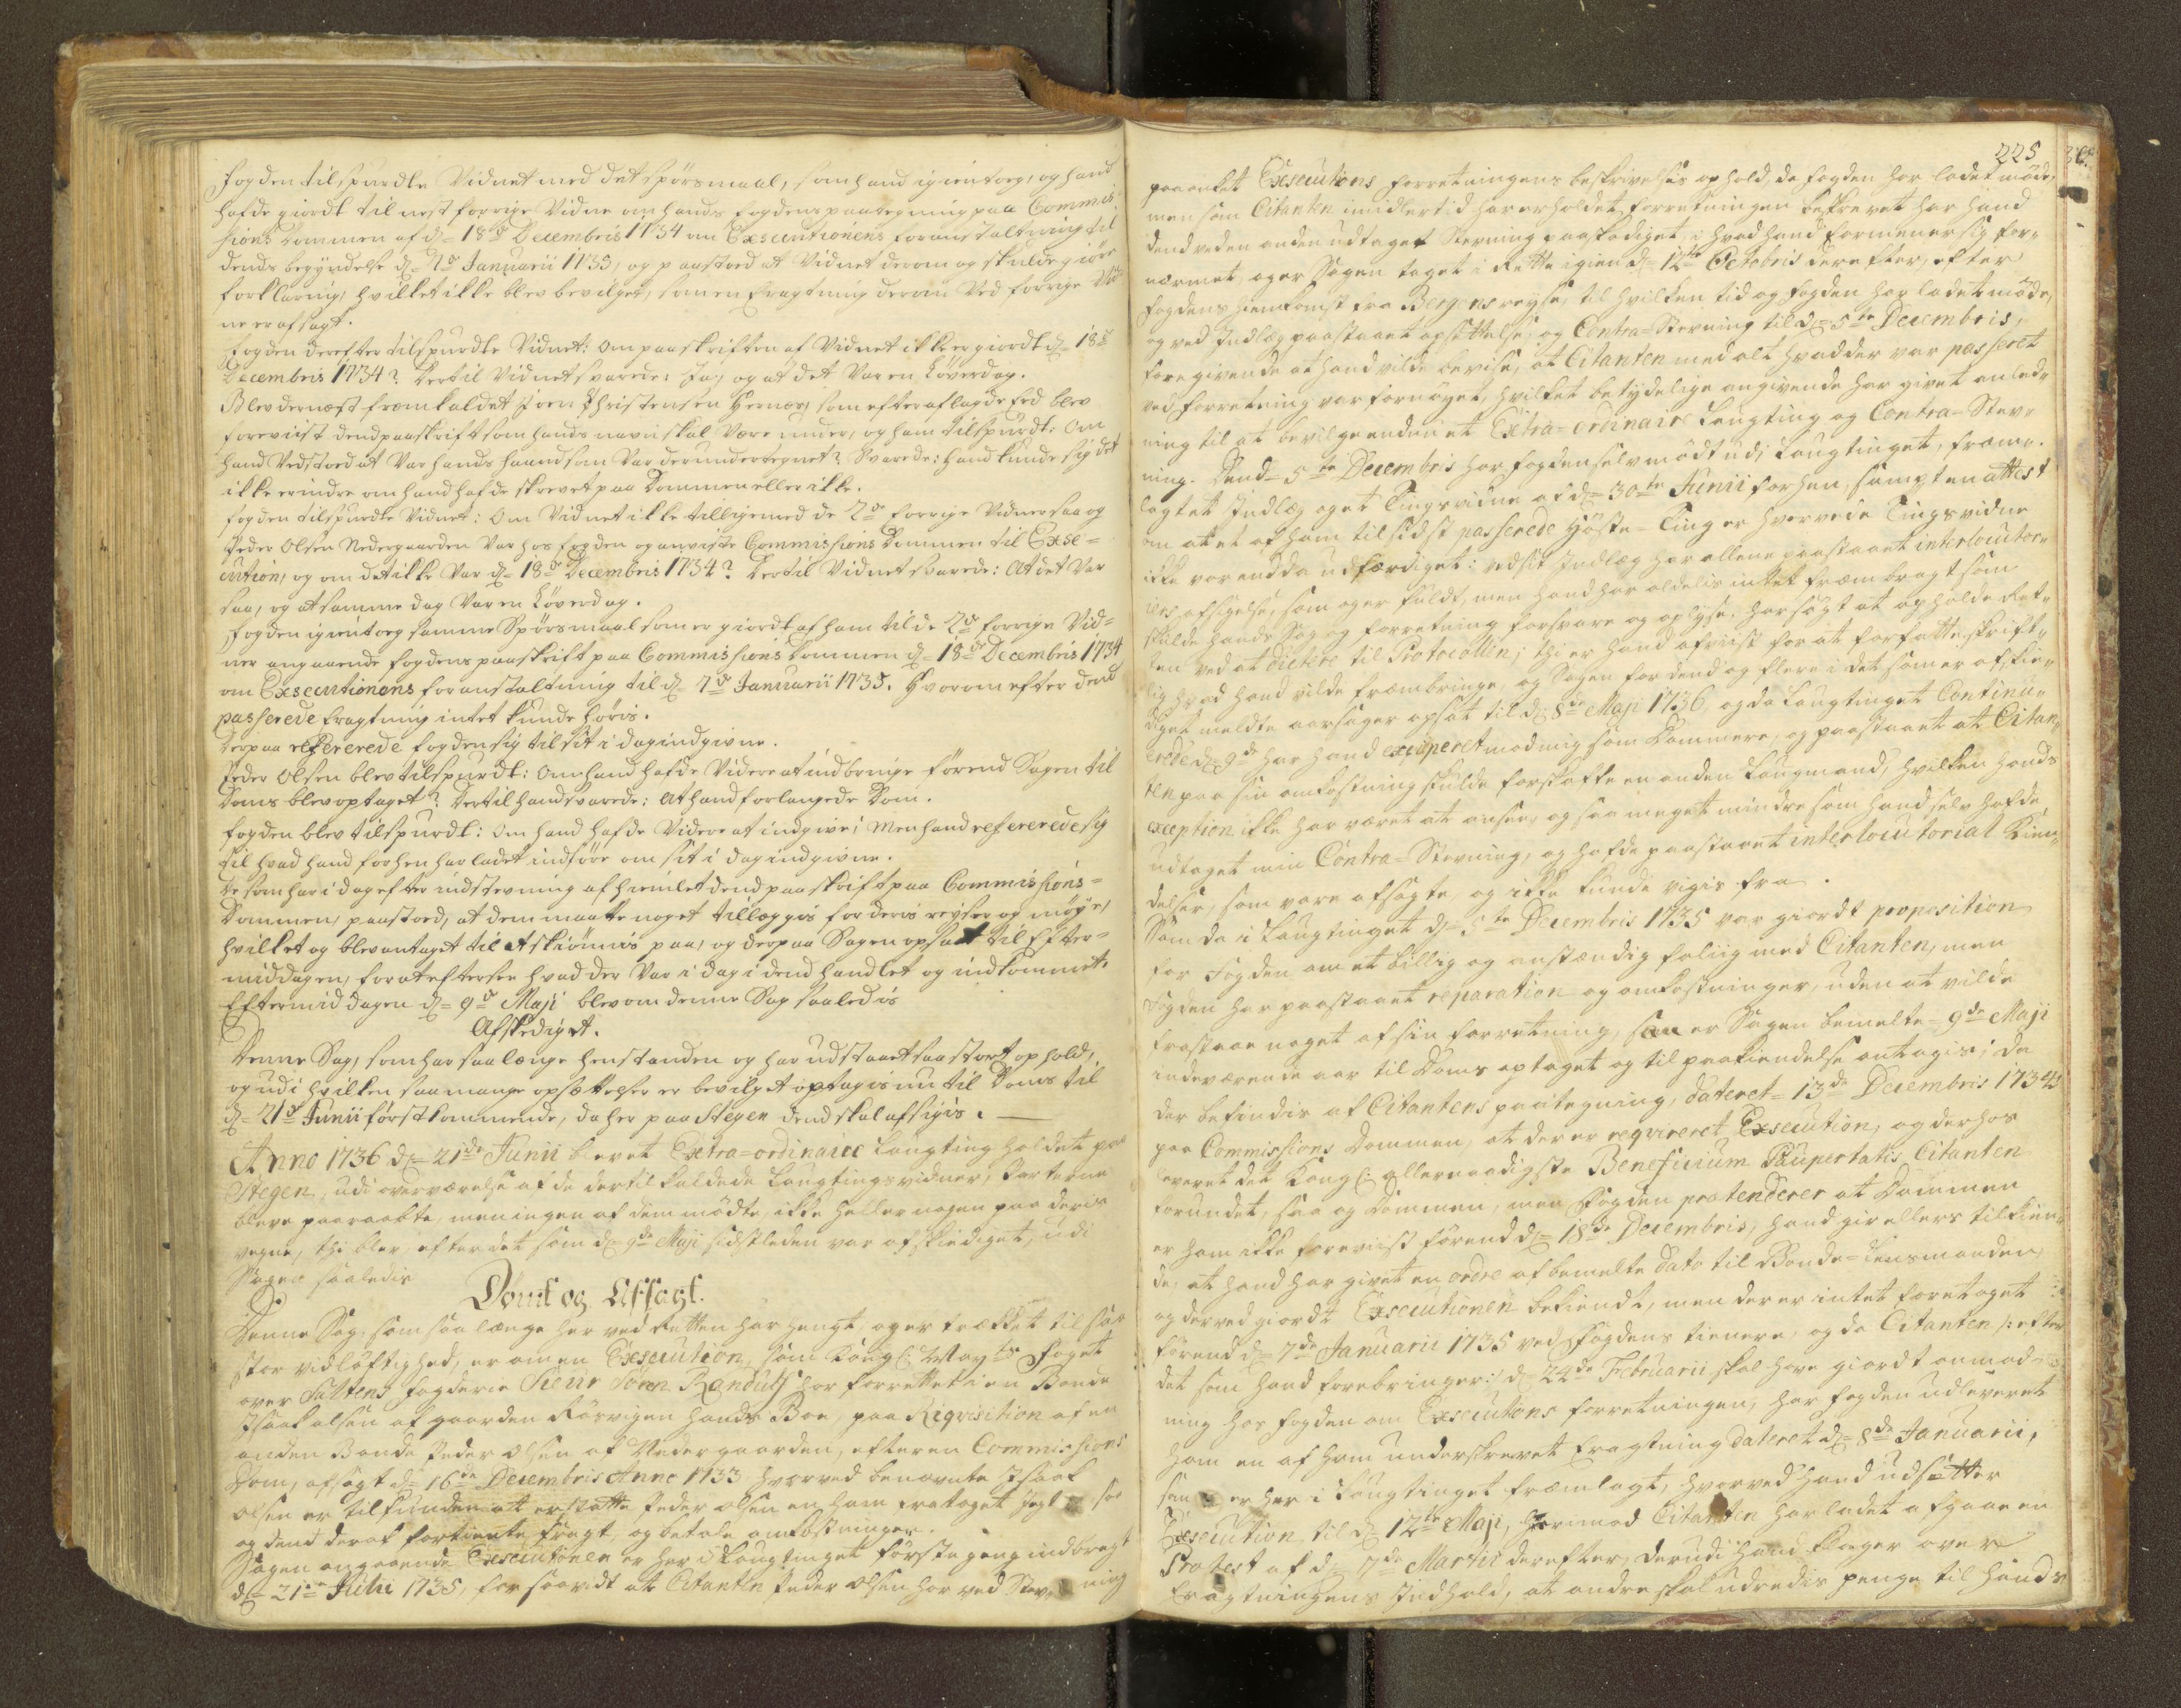 Fogden tilspurdte Vidnet med det spörsmaal, som hand igientog, og hand
hafde giordt til nest forrige Vidne om hands Fogdens paategning paa Commis-
sions Dommen af d= 18de Decembris 1734 om Exsecutionens foranstaltning til
dends begyndelse d= 7de Januarii 1735, og paastoed at Vidnet derom og skulde giöre
forklaring, hvilket ikke blev bevilget, som en Eragtning derom ved forrige Vid-
ne er afsagt.
Fogden derefter tilspurdte Vidnet: Om paaskriften af Vidnet ikke er giordt d= 18de
Decembris 1734? Dertil Vidnet svarede: Ja, og at det Var en Löverdag.
Blev dernæst fremkaldet Joen Christensen Hernæs, som efter aflagde Eed blev
foreviist dend paaskrift som hands navn skal Være under, og ham tilspurdt: Om
hand Vedstoed at Var hands haand som Var der undertegnet? Svarede: hand kunde sig det
ikke erindre om hand hafde skrevet paa Dommen eller ikke.
Fogden tilspurdte Vidnet: Om Vidnet ikke tilligemed de 2de forrige Vidner saa og
Peder Olsen Nedergaarden Var hos Fogden og anviste Commissions Dommen til Exse=
cution, og om det ikke Var d= 18de Decembris 1734? Dertil Vidnet svarede: At det Var
saa, og at samme dag Var en Löverdag.
Fogden igientog samme Spörsmaal som er giordt af ham til de 2de forrige Vid-
ner angaaende Fogdens paaskrift paa Commissions Dommen d= 18de Decembris 1734
om Exsecutionens foranstaltning til d= 7de Januarii 1735. Hvorom efter dend
passerede Eragtning intet kunde höris.
Derpaa refererede Fogden sig til sit i dag indgivne.
Peder Olsen blev tilspurdt: Om hand hafde Videre at indbringe förend Sagen til
Doms blev optaget? Dertil hand svarede: At hand forlangede Dom.
Fogden blev tilspurdt: Om hand hafde Videre at indgive; Men hand refererede sig
til hvad hand forhen har ladet indföre om sit i dag indgivne.
De som har i dag efter indstevning afhiemlet dend paaskrift paa Commissions=
Dommen, paastoed, at dem maatte noget tillæggis for deris reyser og möye,
hvilket og blev antaget til at skiönnis paa, og derpaa Sagen opsadt til Efter-
middagen, for at eftersee hvad der Var i dag i dend handlet og indkommet.
Eftermiddagen d= 9de Maji blev om denne Sag saaledis
Afskediget.
Denne Sag, som har saa længe henstanden og har udstaaet saa stort ophold,
og udi hvilken saa mange opsættelser er bevilget optagis nu til Doms til
d= 21de Junii förstkommende, da her paa Stegen dend skal afsigis.
Anno 1736 d= 21de Junii blevet Extra=ordinaire Laugting holdet paa
Stegen, udi overværelse af de dertil kaldede Laugtingsvidner, Parterne
bleve paaraabte, men ingen af dem mödte, ikke heller nogen paa deris
vegne, thi blev, efter det som d= 9de Maji sidstleden var afskediget, udi
Sagen saaledis
Dömt og Afsagt.
Denne Sag, som saa længe her ved Retten har hengt, og er trækket til saa
stor vidlöftighed, er om en Exsecution, som Kongl: Mayts Foget
over Saltens Fogderie Sieur Sören Randulf har forrettet i en Bonde
Isaak Olsen af gaarden Rösvigen hands Boe, paa Reqvisition af en
anden Bonde Peder Olsen af Nedergaarden, efter en Commissions
Dom, afsagt d= 16de Decembris Anno 1733 hvorved benævnte Isaak
Olsen er tilfunden at erstatte Peder Olsen en ham frataget Jegt saa
og dend deraf fortiente fragt, og betale omkostninger.
Sagen angaaende Exsecutionen er her i Laugtinget förste gang indbragt
d= 21de Julii 1735, for saavidt at Citanten Peder Olsen har ved Stevning
225
paaanket Exsecutions forretningens beskrivelsis ophold, da Fogden har ladet möde,
men som Citanten imidlertid har erholdet forretningen beskrevet har hand
dend ved en anden udtaget Stevning paaskadiget, i hvad hand formener sig for-
nærmet, og er Sagen taget i Rette igien d= 12te Octobris derefter, efter
Fogdens hiemkomst fra Bergens reyse, til hvilken tid og Fogden har ladet möde,
og ved Indlæg paastaaet opsættelse, og Contra=Stevning til d= 5te Decembris,
foregivende at hand vilde bevise, at Citanten med alt hvad der var passeret
ved forretning var fornöyet, hvilket betydelige angivende har givet anled-
ning til at bevilge endnu et Extra=ordinaire Laugting og Contra=Stev-
ning. Dend= 5te Decembris har Fogden selv mödt udi Laugtinget, frem-
lagt et Indlæg og et Tingsvidne af d= 30te Junii forhen, sampt en attest
om at et af ham til sidst passerede Höste=Ting erhvervede Tingsvidne
ikke var endda udfærdiget: ved sit Indlæg har allene paastaaet interlocutor-
iers afsigelse, som og er fuldt, men hand har aldelis intet frembragt som
skulde hands Sag og forretning forsvare og oplyse, har sögt at opholde Ret-
ten ved at dictere til Protocollen; thi er hand afviist for at forfatte skrift-
lig hvad hand vilde frembringe, og Sagen for dend og flere i det som er afskie-
diget meldte aarsager opsat til d= 8de Maji 1736, og da Laugtinget Continu-
erede d= 9de har hand exciperet mod mig som Dommere, og paastaaet at Citan-
ten paa sin omkostning skulde forskaffe en anden Laugmand, hvilken hands
exception ikke har været at ansee, og saa meget mindre som hand selv hafde
udtaget min Contra=Stevning, og hafde paastaaet interlocutorial Kien-
delser, som vare afsagte og ikke kunde vigis fra.
Som da i Laugtinget d= 5te Decembris 1735 var giordt proposition
for Fogden om et billig og anstændig foliig med Citanten, men
Fogden har paastaaet reparation og omkostninger, uden at vilde
frastaae noget af sin forretning, saa er Sagen bemelte= 9de Maji
indeværende aar til Doms optaget og til paakiendelse antagis; da
der befindis af Citantens paategning, dateret= 13de Decembris 1734
paa Commissions Dommen, at der er reqvireret Exsecution, og derhos
leveret det Kongl: allernaadigste Beneficium Paupertatis Citanten
forundet, saa og Dommen, men Fogden prætenderer at Dommen
er ham ikke foreviist förend d= 18de Decembris, hand gir ellers tilkien-
de, at hand har givet en ordre af bemelte dato til Bonde=Lensmanden,
og derved giordt Exsecutionen bekiendt, men der er intet foretaget
förend d= 7de Januarii 1735 ved Fogdens tienere, og da Citanten /: efter
det som hand forebringer:/ d= 24de Februarii skal have giordt anmod-
ning hos Fogden om Exsecutions forretningen, har Fogden udleveret
ham en af ham underskrevet Eragtning dateret d= 8de Januarii,
som er her i Laugtinget fremlagt, hvorved hand udsætter
Exsecution til d= 12te Maji, hvormod Citanten har ladet afgaae en
Protest af d= 7de Martii derefter, derudi hand klager over
Eragtningens Indhold, at andre skal udredis penge til hands